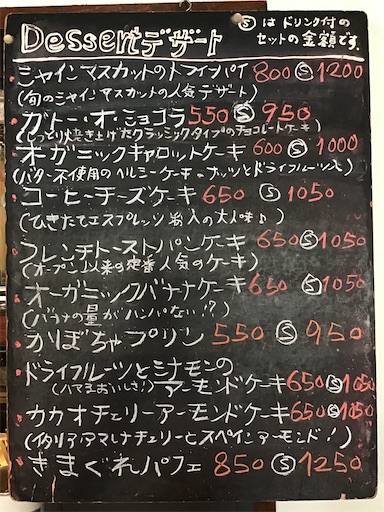 Dessertデザート
Ⓢはドリンク付の
セットの金額です。
シャインマスカットのトライフルパイ 800 Ⓢ 1200
(旬のシャインマスカットの人気デザート)
ガトー・オ・ショコラ 550 Ⓢ 950
(しっとり焼き上げたクラッシックタイプのチョコレートケーキ)
オーガニックキャロットケーキ 600 Ⓢ 1000
(バター不使用のヘルシーケーキ ナッツとドライフルーツ入)
コーヒーチーズケーキ 650 Ⓢ 1050
(ひきたてエスプレッソ 入の大人味♪)
フレンチトーストパンケーキ 650 Ⓢ 1050
(オープン以来の定番人気のケーキ)
オーガニックバナナケーキ 650 Ⓢ 1050
(バナナの量がハンパない!?)
かぼちゃプリン 550 Ⓢ 950
ドライフルーツとシナモンの
(ハマるおいしさ!) アーモンドケーキ 650 Ⓢ 1050
カカオチェリーアーモンドケーキ 650 Ⓢ 1050
(イタリアアマレナチェリーとスペインアーモンド!)
きまぐれパフェ 850 Ⓢ 1250